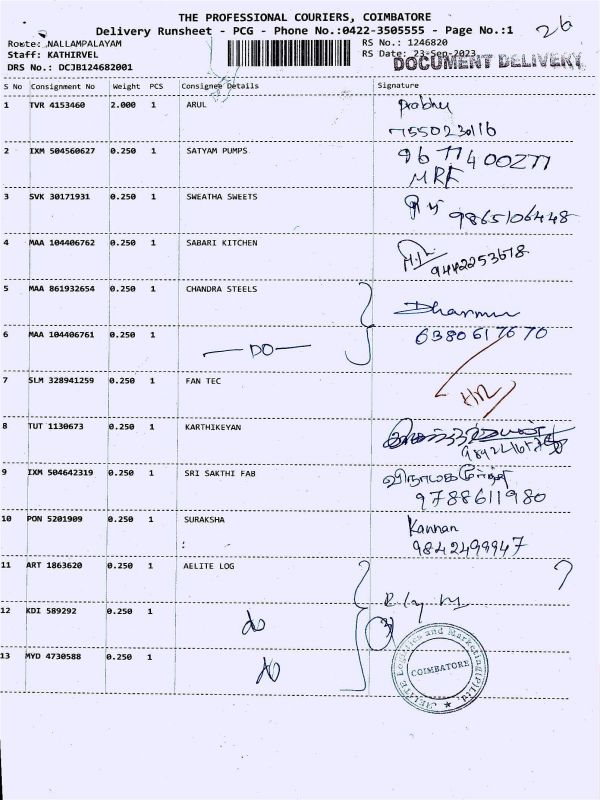 THE PROFESSIONAL COURIERS, COIMBATORE
Delivery Runsheet - PCG - Phone No.:0422-3505555 - Page No.:1
26
Route: NALLAMPALAYAM
RS No.: 1246820
Staff: KATHIRVEL
RS Date: 23-Sep-2023
DOCUMENT DELIVERY
DRS No.: DCJB124682001
S No Consignment No Weight PCS Consignee Details Signature
1 TVR 4153460 2.000 1 ARUL Prabhu
7550230116
2 IXM 504560627 0.250 1 SATYAM PUMPS 9677400277
MRF
3 SVK 30171931 0.250 1 SWEATHA SWEETS 9865106448
4 MAA 104406762 0.250 1 SABARI KITCHEN 9442253678
5 MAA 861932654 0.250 1 CHANDRA STEELS Dharmur
6 MAA 104406761 0.250 1 DO 6380617670
7 SLM 328941259 0.250 1 FAN TEC
8 TUT 1130673 0.250 1 KARTHIKEYAN
9 IXM 504642319 0.250 1 SRI SAKTHI FAB
9788611980
10 PON 5201909 0.250 1 SURAKSHA Kannan
: 9842499947
11 ART 1863620 0.250 1 AELITE LOG
12 KDI 589292 0.250 1 do 3
13 MYD 4730588 0.250 1 do
AELITE Logistics and Marketing (P) Ltd.
COIMBATORE